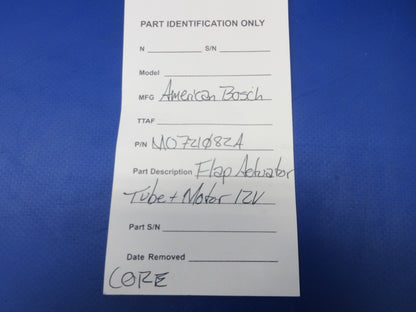 PART IDENTIFICATION ONLY
N ____________ S/N ____________
Model ____________
MFG American Bosch
TTAF ____________
P/N MO721082A
Part Description Flap Actuator
Tube + Motor 12V
Part S/N ____________
Date Removed ____________
CORE